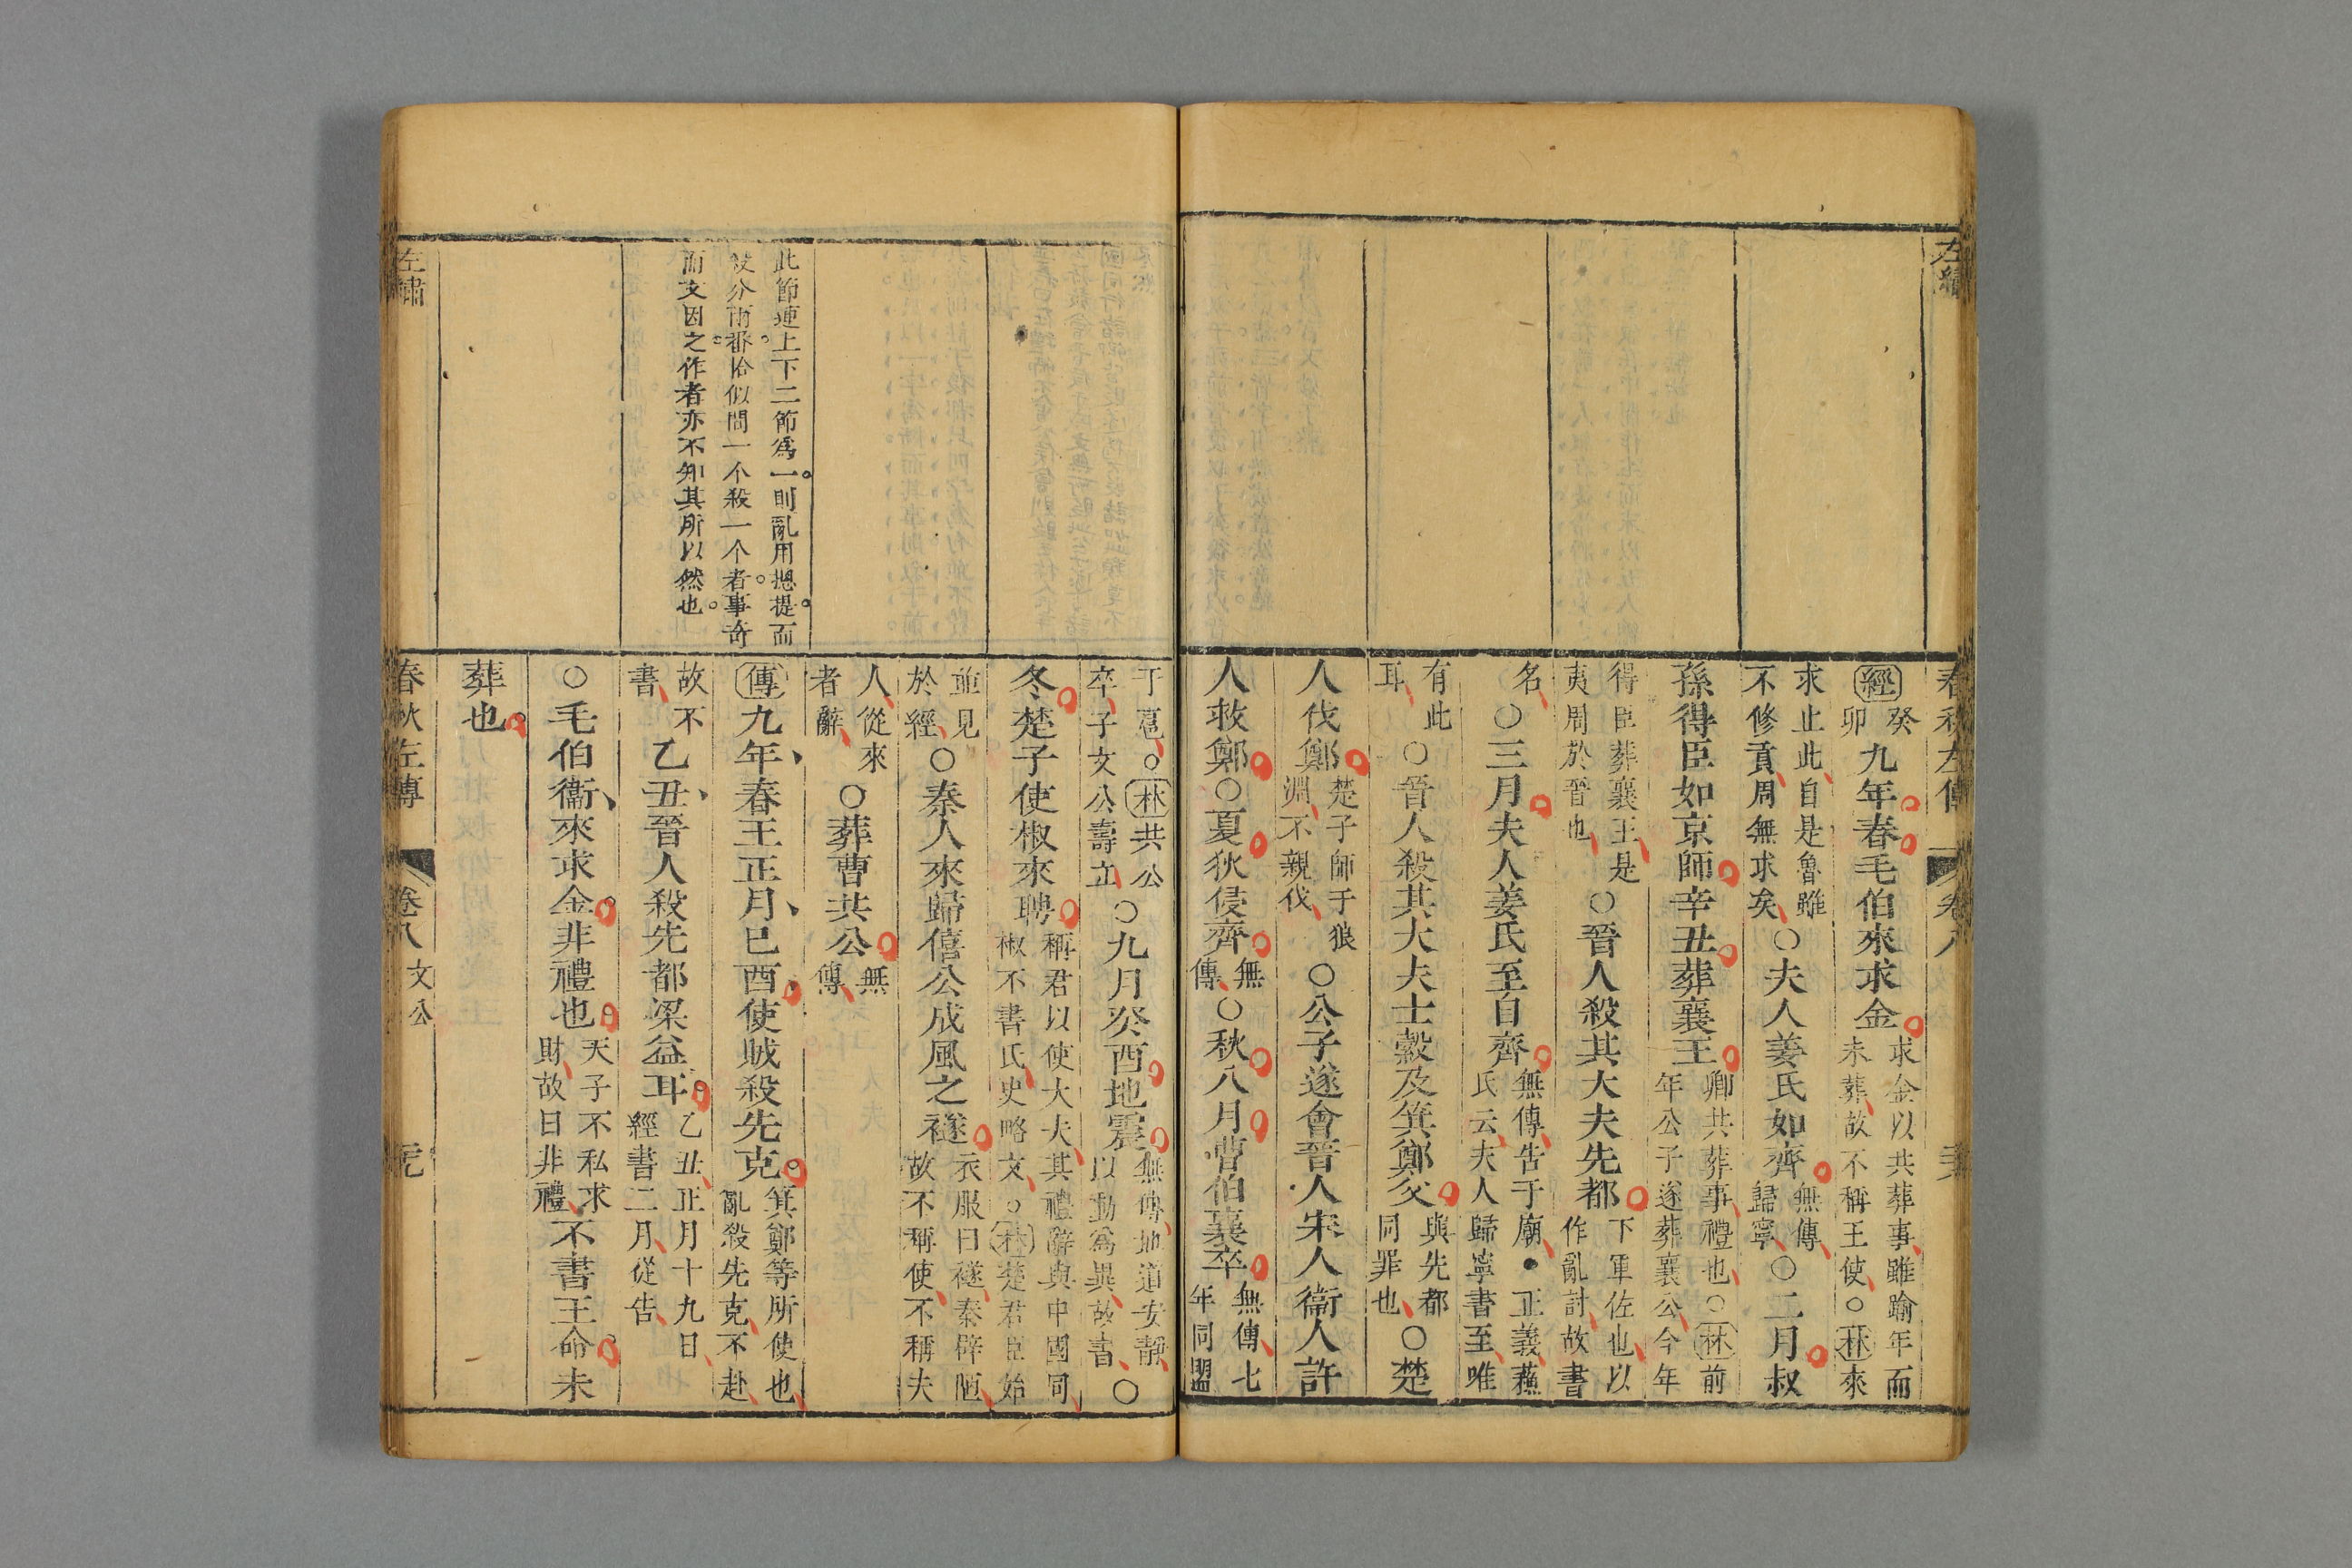 左繡
春秋左傳 卷八
經癸卯九年春毛伯來求金求金以共葬事雖踰年而未葬故不稱王使○林來
求止此自是魯雖不修貢周無求矣○夫人姜氏如齊無傳歸寧○二月叔
孫得臣如京師辛丑葬襄王卿共葬事禮也○林前年公子遂葬襄公今年
得臣葬襄王是夷周於晉也○晉人殺其大夫先都下軍佐也以作亂討故書
名○三月夫人姜氏至自齊無傳告于廟•正義蘓氏云夫人歸寧書至唯
有此耳○晉人殺其大夫士縠及箕鄭父與先都同罪也○楚
人伐鄭楚子師于狼淵不親伐○公子遂會晉人宋人衞人許
人救鄭○夏狄侵齊無傳○秋八月曹伯襄卒無傳七年同盟
于扈○林共公卒子文公壽立○九月癸酉地震無傳地道安靜以動爲異故書○
冬楚子使椒來聘稱君以使大夫其禮辭與中國同椒不書氏史略文○林楚君臣始
並見於經○秦人來歸僖公成風之襚衣服曰襚秦辟陋故不稱使不稱夫
人從來者辭○葬曹共公無傳
此節連上下二節爲一則亂用摠提而
殺分兩番恰似問一个殺一个者事奇
而文因之作者亦不知其所以然也
傳九年春王正月己酉使賊殺先克箕鄭等所使也亂殺先克不赴
故不書乙丑晉人殺先都梁益耳乙丑正月十九日經書二月從告
○毛伯衞來求金非禮也天子不私求財故曰非禮不書王命未
葬也
左繡
春秋左傳 卷八 文公